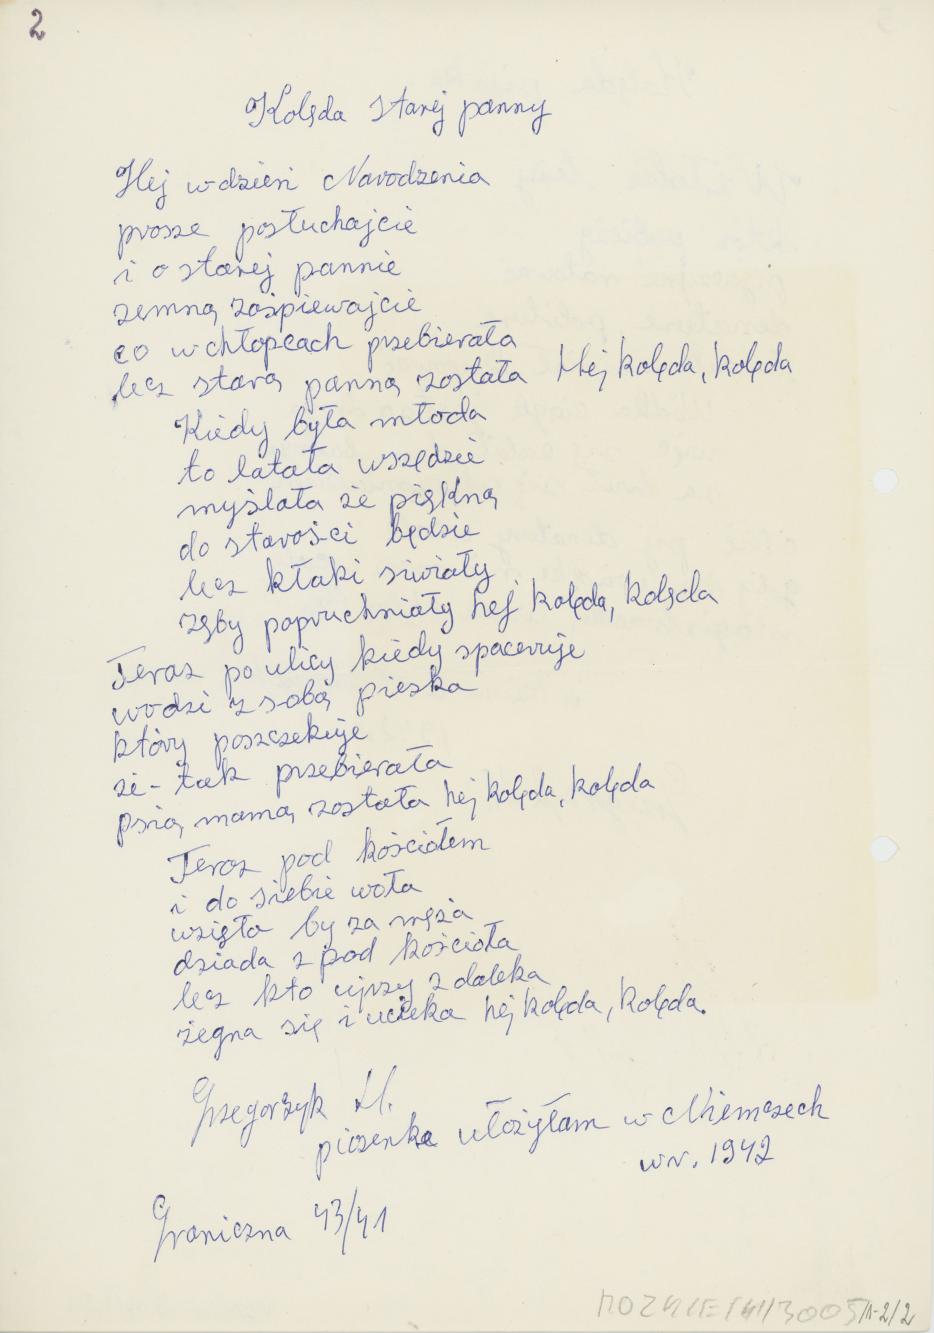 2
Kolęda starej panny
Hej w dzień Narodzenia
prosze posłuchajcie
i o starej pannie
zemną zaśpiewajcie
co w chłopcach przebierała
lecz starą panną została Hej kolęda, kolęda
Kiedy była młoda
to latała wszędzie
myślała że piękną
do starości będzie
lecz kłaki siwiały
zęby popruchniały hej kolęda, kolęda
Teraz po ulicy kiedy spaceruje
wodzi z sobą pieska
który poszczekuje
że - tak przebierała
psią mamą została hej kolęda, kolęda
Teraz pod kościołem
i do siebie woła
wzięła by za męża
dziada z pod kościoła
lecz kto ujrzy z daleka
żegna się i ucieka hej kolęda, kolęda.
Grzegorzyk M.
piosenke ułożyłam w Niemczech
w r. 1942
Graniczna 43/41
/1-2/2